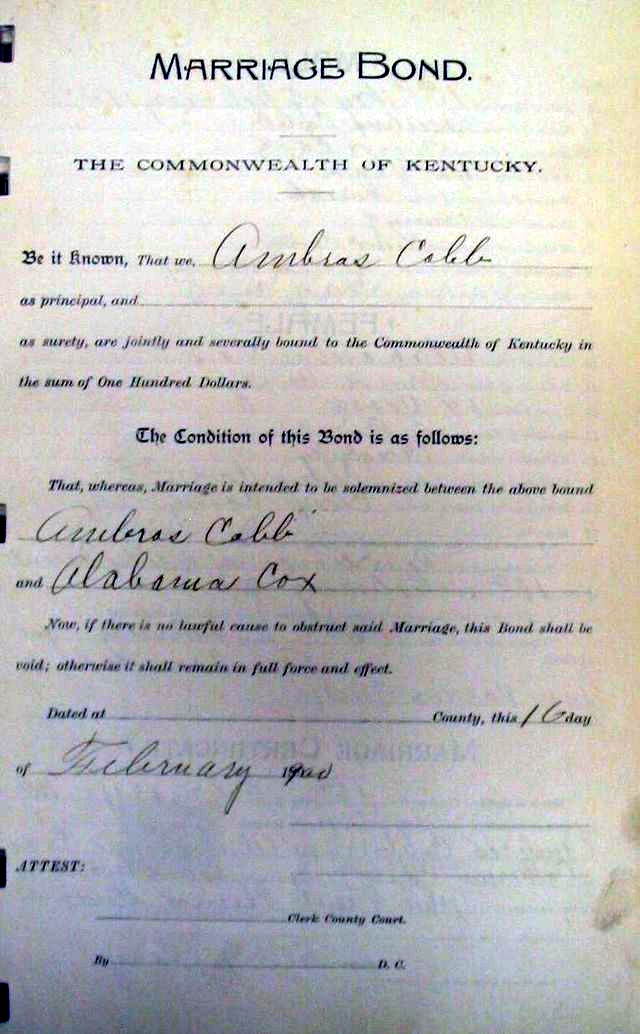 MARRIAGE BOND.
THE COMMONWEALTH OF KENTUCKY.
Be it Known, That we, Ambras Cobb
as principal, and
as surety, are jointly and severally bound to the Commonwealth of Kentucky in
the sum of One Hundred Dollars.
The Condition of this Bond is as follows:
That, whereas, Marriage is intended to be solemnized between the above bound
Ambras Cobb
and Alabama Cox
Now, if there is no lawful cause to obstruct said Marriage, this Bond shall be
void; otherwise it shall remain in full force and effect.
Dated at County, this 16 day
of February 1900
ATTEST:
Clerk County Court.
By D. C.